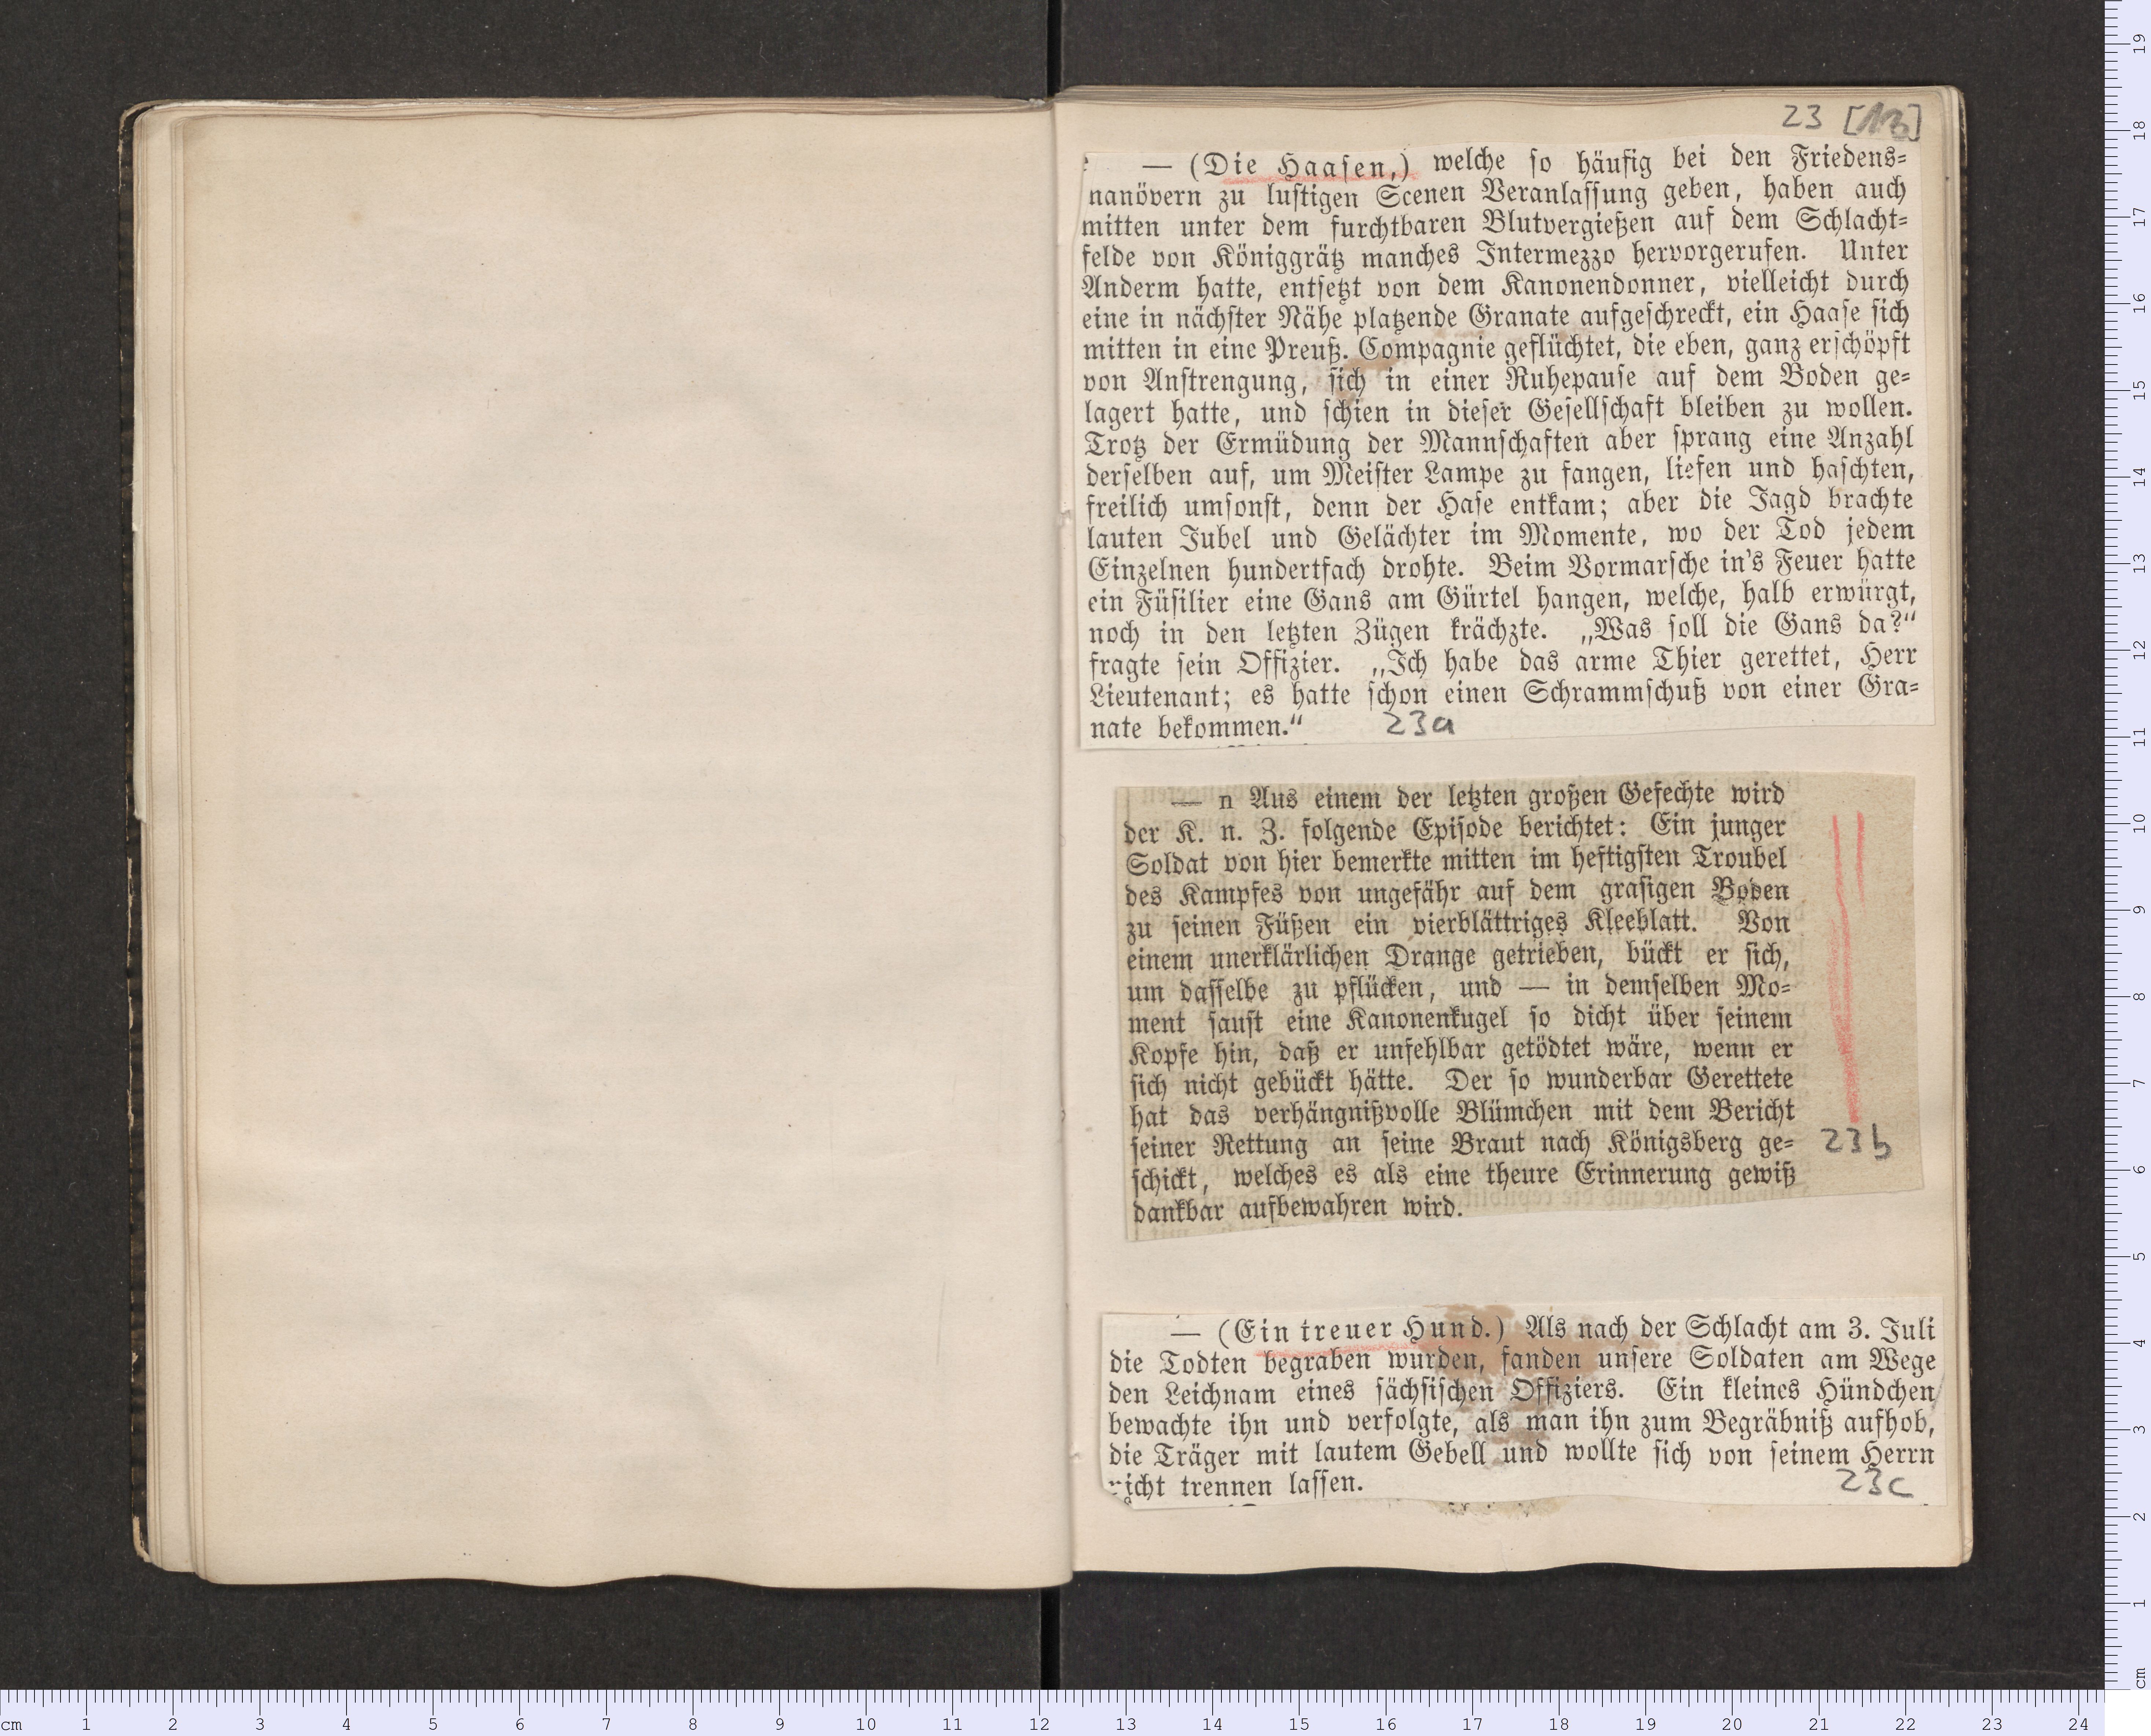 23 [13]
— (Die Haasen,) welche so häufig bei den Friedens=
nanövern zu lustigen Scenen Veranlassung geben, haben auch
mitten unter dem furchtbaren Blutvergießen auf dem Schlacht=
felde von Königgrätz manches Intermezzo hervorgerufen. Unter
Anderm hatte, entsetzt von dem Kanonendonner, vielleicht durch
eine in nächster Nähe platzende Granate aufgeschreckt, ein Haase sich
mitten in eine Preuß. Compagnie geflüchtet, die eben, ganz erschöpft
von Anstrengung, sich in einer Ruhepause auf dem Boden ge=
lagert hatte, und schien in dieser Gesellschaft bleiben zu wollen.
Trotz der Ermüdung der Mannschaften aber sprang eine Anzahl
derselben auf, um Meister Lampe zu fangen, liefen und haschten,
freilich umsonst, denn der Hase entkam; aber die Jagd brachte
lauten Jubel und Gelächter im Momente, wo der Tod jedem
Einzelnen hundertfach drohte. Beim Vormarsche in's Feuer hatte
ein Füsilier eine Gans am Gürtel hangen, welche, halb erwürgt,
noch in den letzten Zügen krächzte. „Was soll die Gans da?“
fragte sein Offizier. „Ich habe das arme Thier gerettet, Herr
Lieutenant; es hatte schon einen Schrammschuß von einer Gra=
nate bekommen.“ 23a
— n Aus einem der letzten großen Gefechte wird
der K. n. Z. folgende Episode berichtet: Ein junger
Soldat von hier bemerkte mitten im heftigsten Troubel
des Kampfes von ungefähr auf dem grasigen Boden
zu seinen Füßen ein vierblättriges Kleeblatt. Von
einem unerklärlichen Drange getrieben, bückt er sich,
um dasselbe zu pflücken, und — in demselben Mo=
ment saust eine Kanonenkugel so dicht über seinem
Kopfe hin, daß er unfehlbar getödtet wäre, wenn er
sich nicht gebückt hätte. Der so wunderbar Gerettete
hat das verhängnißvolle Blümchen mit dem Bericht
seiner Rettung an seine Braut nach Königsberg ge=
schickt, welches es als eine theure Erinnerung gewiß
dankbar aufbewahren wird.
23b
— (Ein treuer Hund.) Als nach der Schlacht am 3. Juli
die Todten begraben wurden, fanden unsere Soldaten am Wege
den Leichnam eines sächsischen Offiziers. Ein kleines Hündchen
bewachte ihn und verfolgte, als man ihn zum Begräbniß aufhob,
die Träger mit lautem Gebell und wollte sich von seinem Herrn
nicht trennen lassen.
23c
cm 1 2 3 4 5 6 7 8 9 10 11 12 13 14 15 16 17 18 19 20 21 22 23 24
cm 1 2 3 4 5 6 7 8 9 10 11 12 13 14 15 16 17 18 19